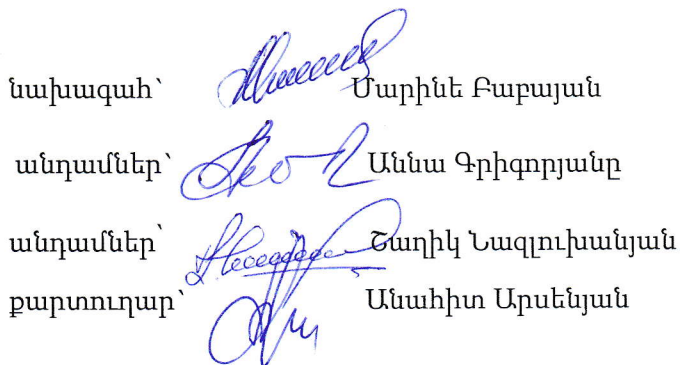 նախագահ՝ Մարինե Բաբայան
անդամներ՝ Աննա Գրիգորյանը
անդամներ՝ Ծաղիկ Նազլուխանյան
քարտուղար՝ Անահիտ Արսենյան